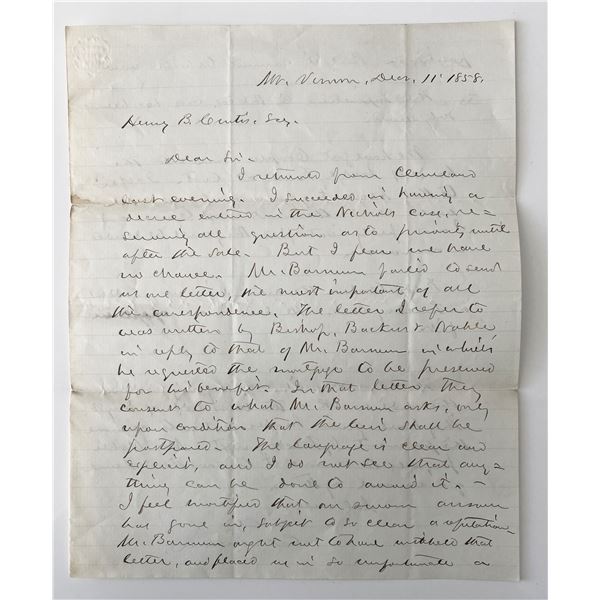 Mt. Vernon, Decr. 11' 1858.
Henry B. Curtis, Esq.
Dear Sir.
I returned from Cleveland
last evening. I succeeded in having a
decree entered in the Nichols case, re=
serving all question as to priority until
after the sale. But I fear we have
no chance. Mr. Barnum failed to send
us one letter, the most important of all
the correspondence. The letter I refer to
was written by Bishop, Backus & Noble
in reply to that of Mr. Barnum in which
he requested the mortgage to be preserved
for his benefit. In that letter they
consent to what Mr. Barnum asks, only
upon condition that the lien shall be
postponed. The language is clear and
explicit, and I do not see that any=
thing can be done to avoid it. –
I feel mortified that our sworn answer
has gone in, subject to so clear a refutation.
Mr. Barnum ought not to have withheld that
letter, and placed us in so unfortunate a